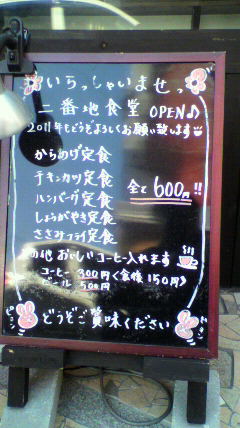 いらっしゃいませっ
一番地食堂 OPEN♪
2011年もどうぞよろしくお願い致します
からあげ定食
チキンカツ定食
ハンバーグ定食
しょうがやき定食
ささみフライ定食
全て600円!!
の他 おいしいコーヒー入れます
コーヒー 300円<食後150円>
ビール 500円
どうぞご賞味ください